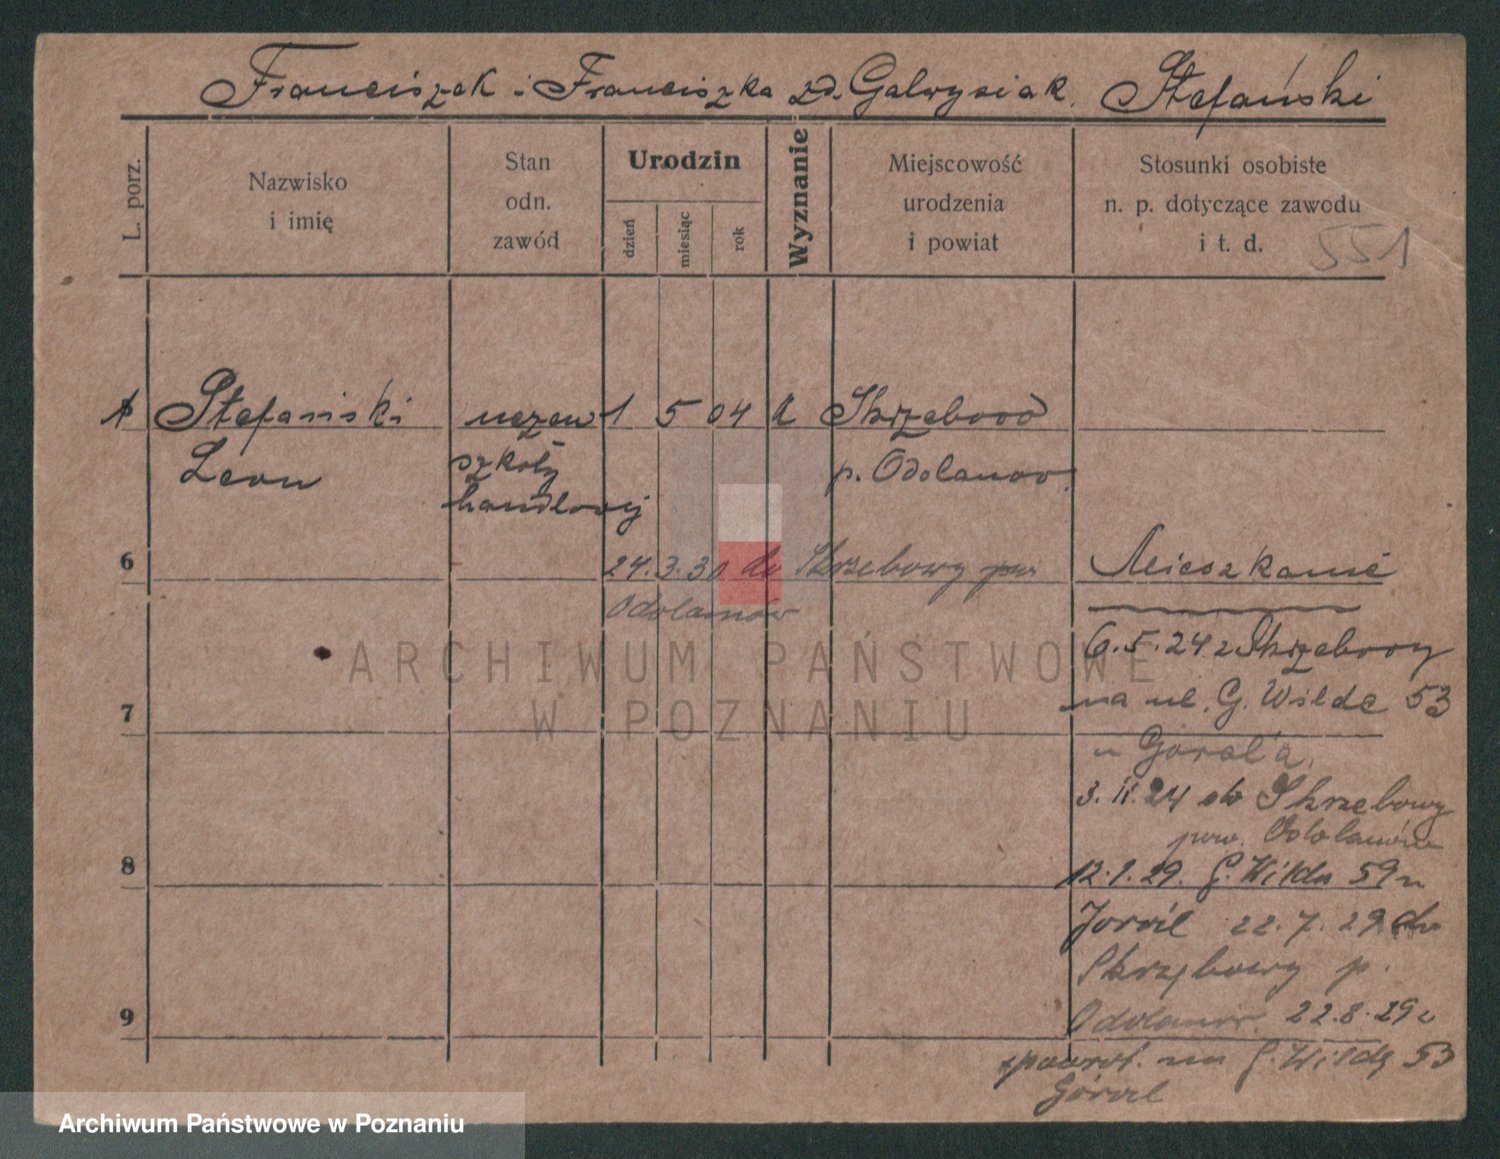 Franciszek i Franciszka zd. Galwysiak. Stefański
L. porz.
Nazwisko
i imię
Stan
odn.
zawód
Urodzin
dzień
miesiąc
rok
Wyznanie
Miejscowość
urodzenia
i powiat
Stosunki osobiste
n. p. dotyczące zawodu
i t. d.
551
Stefański uczeń 1 5 04 k Skrzebow
Leon szkoły p. Odolanow.
handlowej
6 24.3.30 do Skrzebowy pow Mieszkanie
Odolanów
6.5.24 z Skrzebowy
ARCHIWUM PAŃSTWOWE
7 na ul. G. Wilde 53
W POZNANIU
u Góral'a.
3. 11. 24 do Skrzebowy
pow. Odolanów
8 12.1.29. G. Wilda 59 u
22.7.29 do
Skrzębowy p.
9 Odolanow. 22.8.29 z
spowrot. na G. Wildę 53
Góral
Archiwum Państwowe w Poznaniu